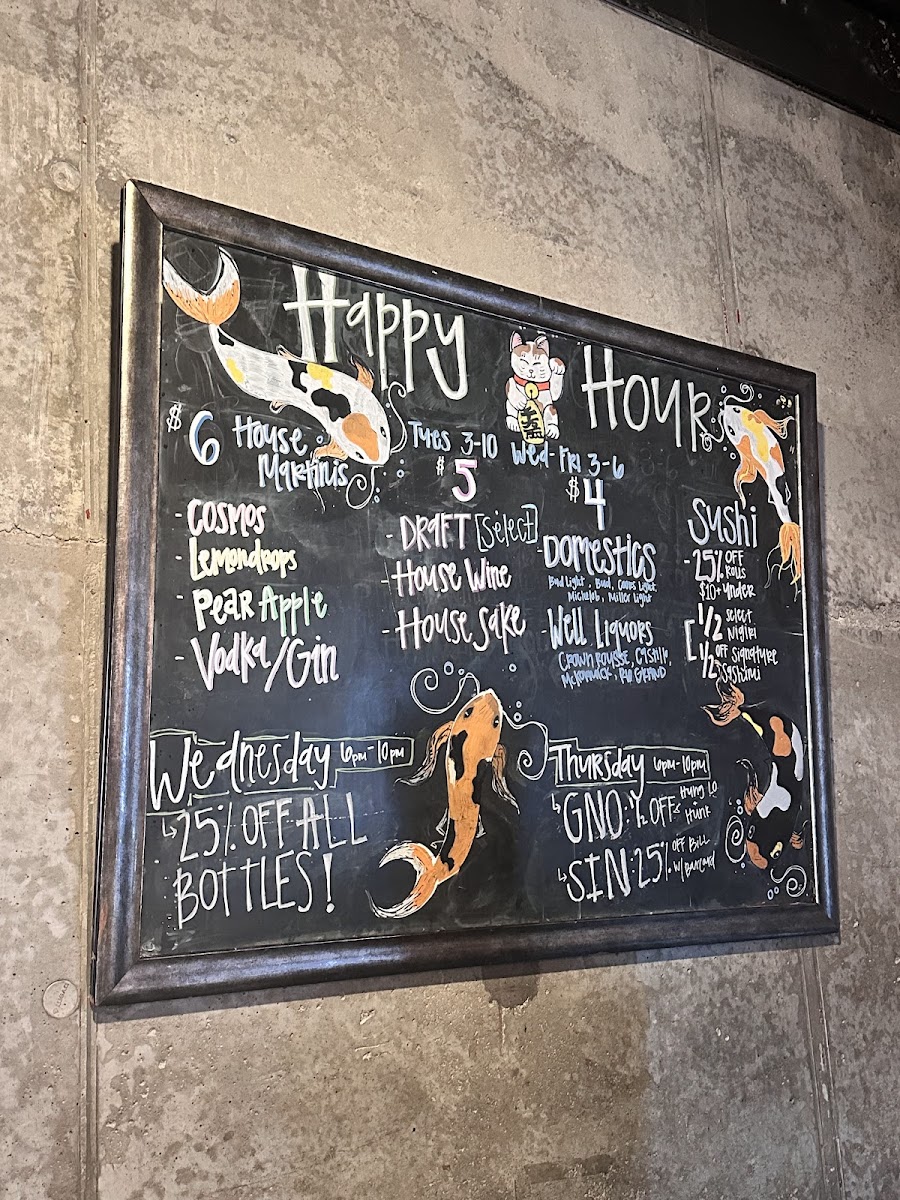 Happy Hour
Tues 3-10 Wed-Fri 3-6
$6 House
Martinis
- Cosmos
- Lemondrops
- Pear Apple
- Vodka/Gin
$5
- DRAFT [Select]
- House Wine
- House Sake
$4
- Domestics
Bud Light, Bud, Coors Light
Michelob, Miller Light
- Well Liquors
Sushi
- 25% OFF
Rolls
$10 + under
[1/2 select
Nigiri
1/2 OFF Signature
Sashimi
Wednesday 6pm-10pm
25% OFF ALL
BOTTLES!
Thursday 6pm-10pm
GNO: 1/2 OFF Hung Lo
+ Hunk
SIN: 25% OFF Bill